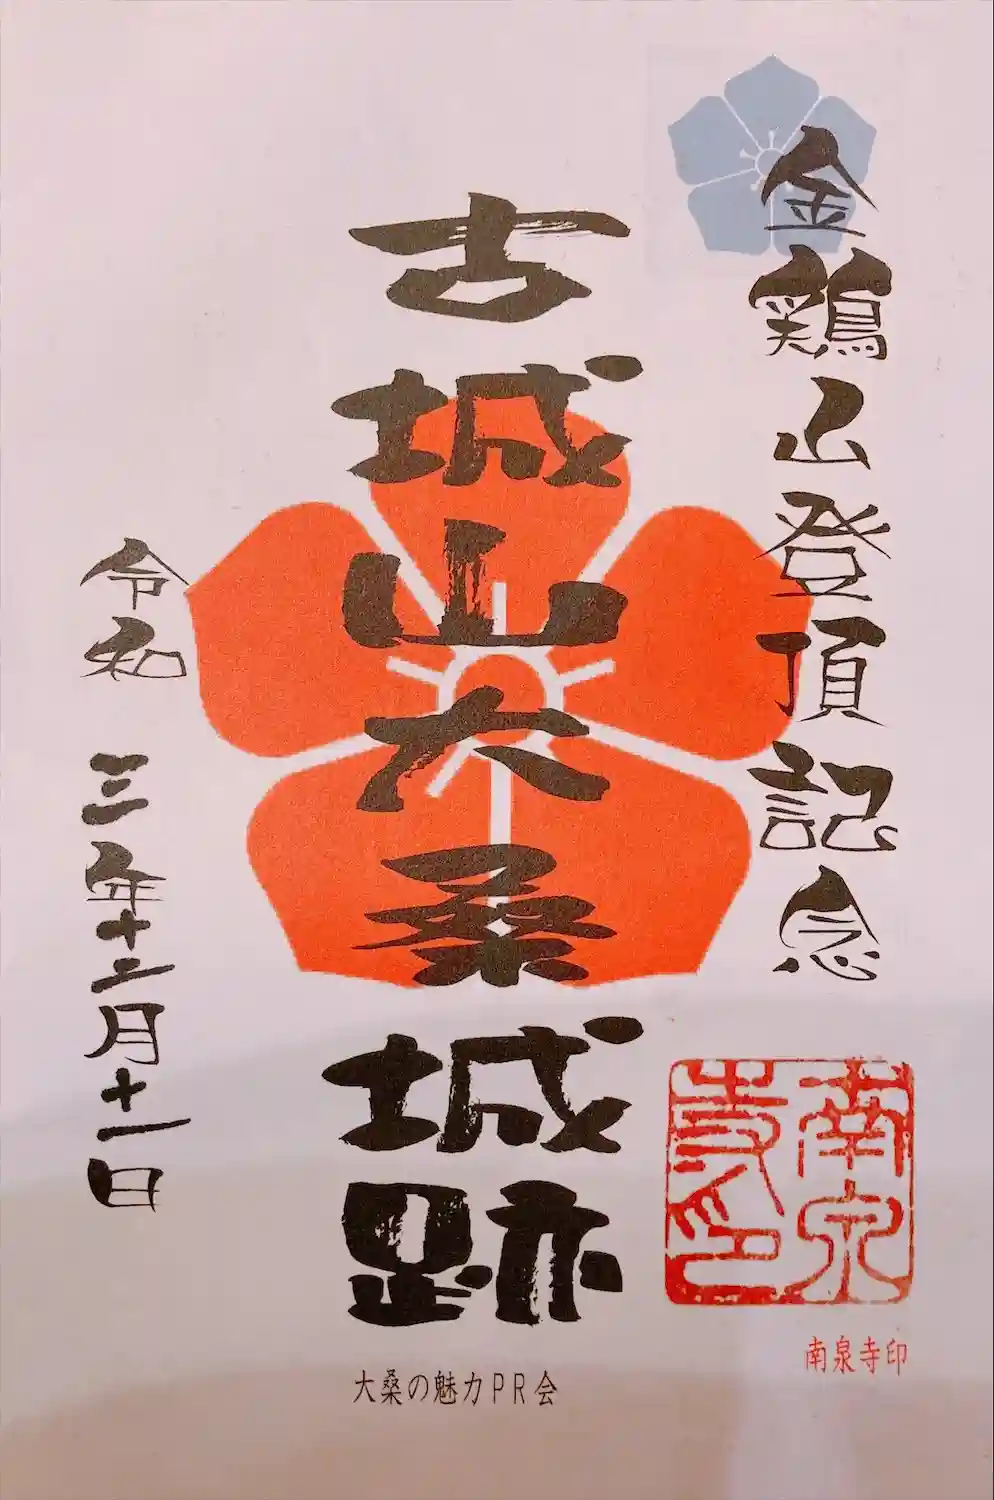 金鶏山登頂記念
古城山大桑城跡
令和 三年十二月十一日
南泉寺印
南泉寺印
大桑の魅力PR会